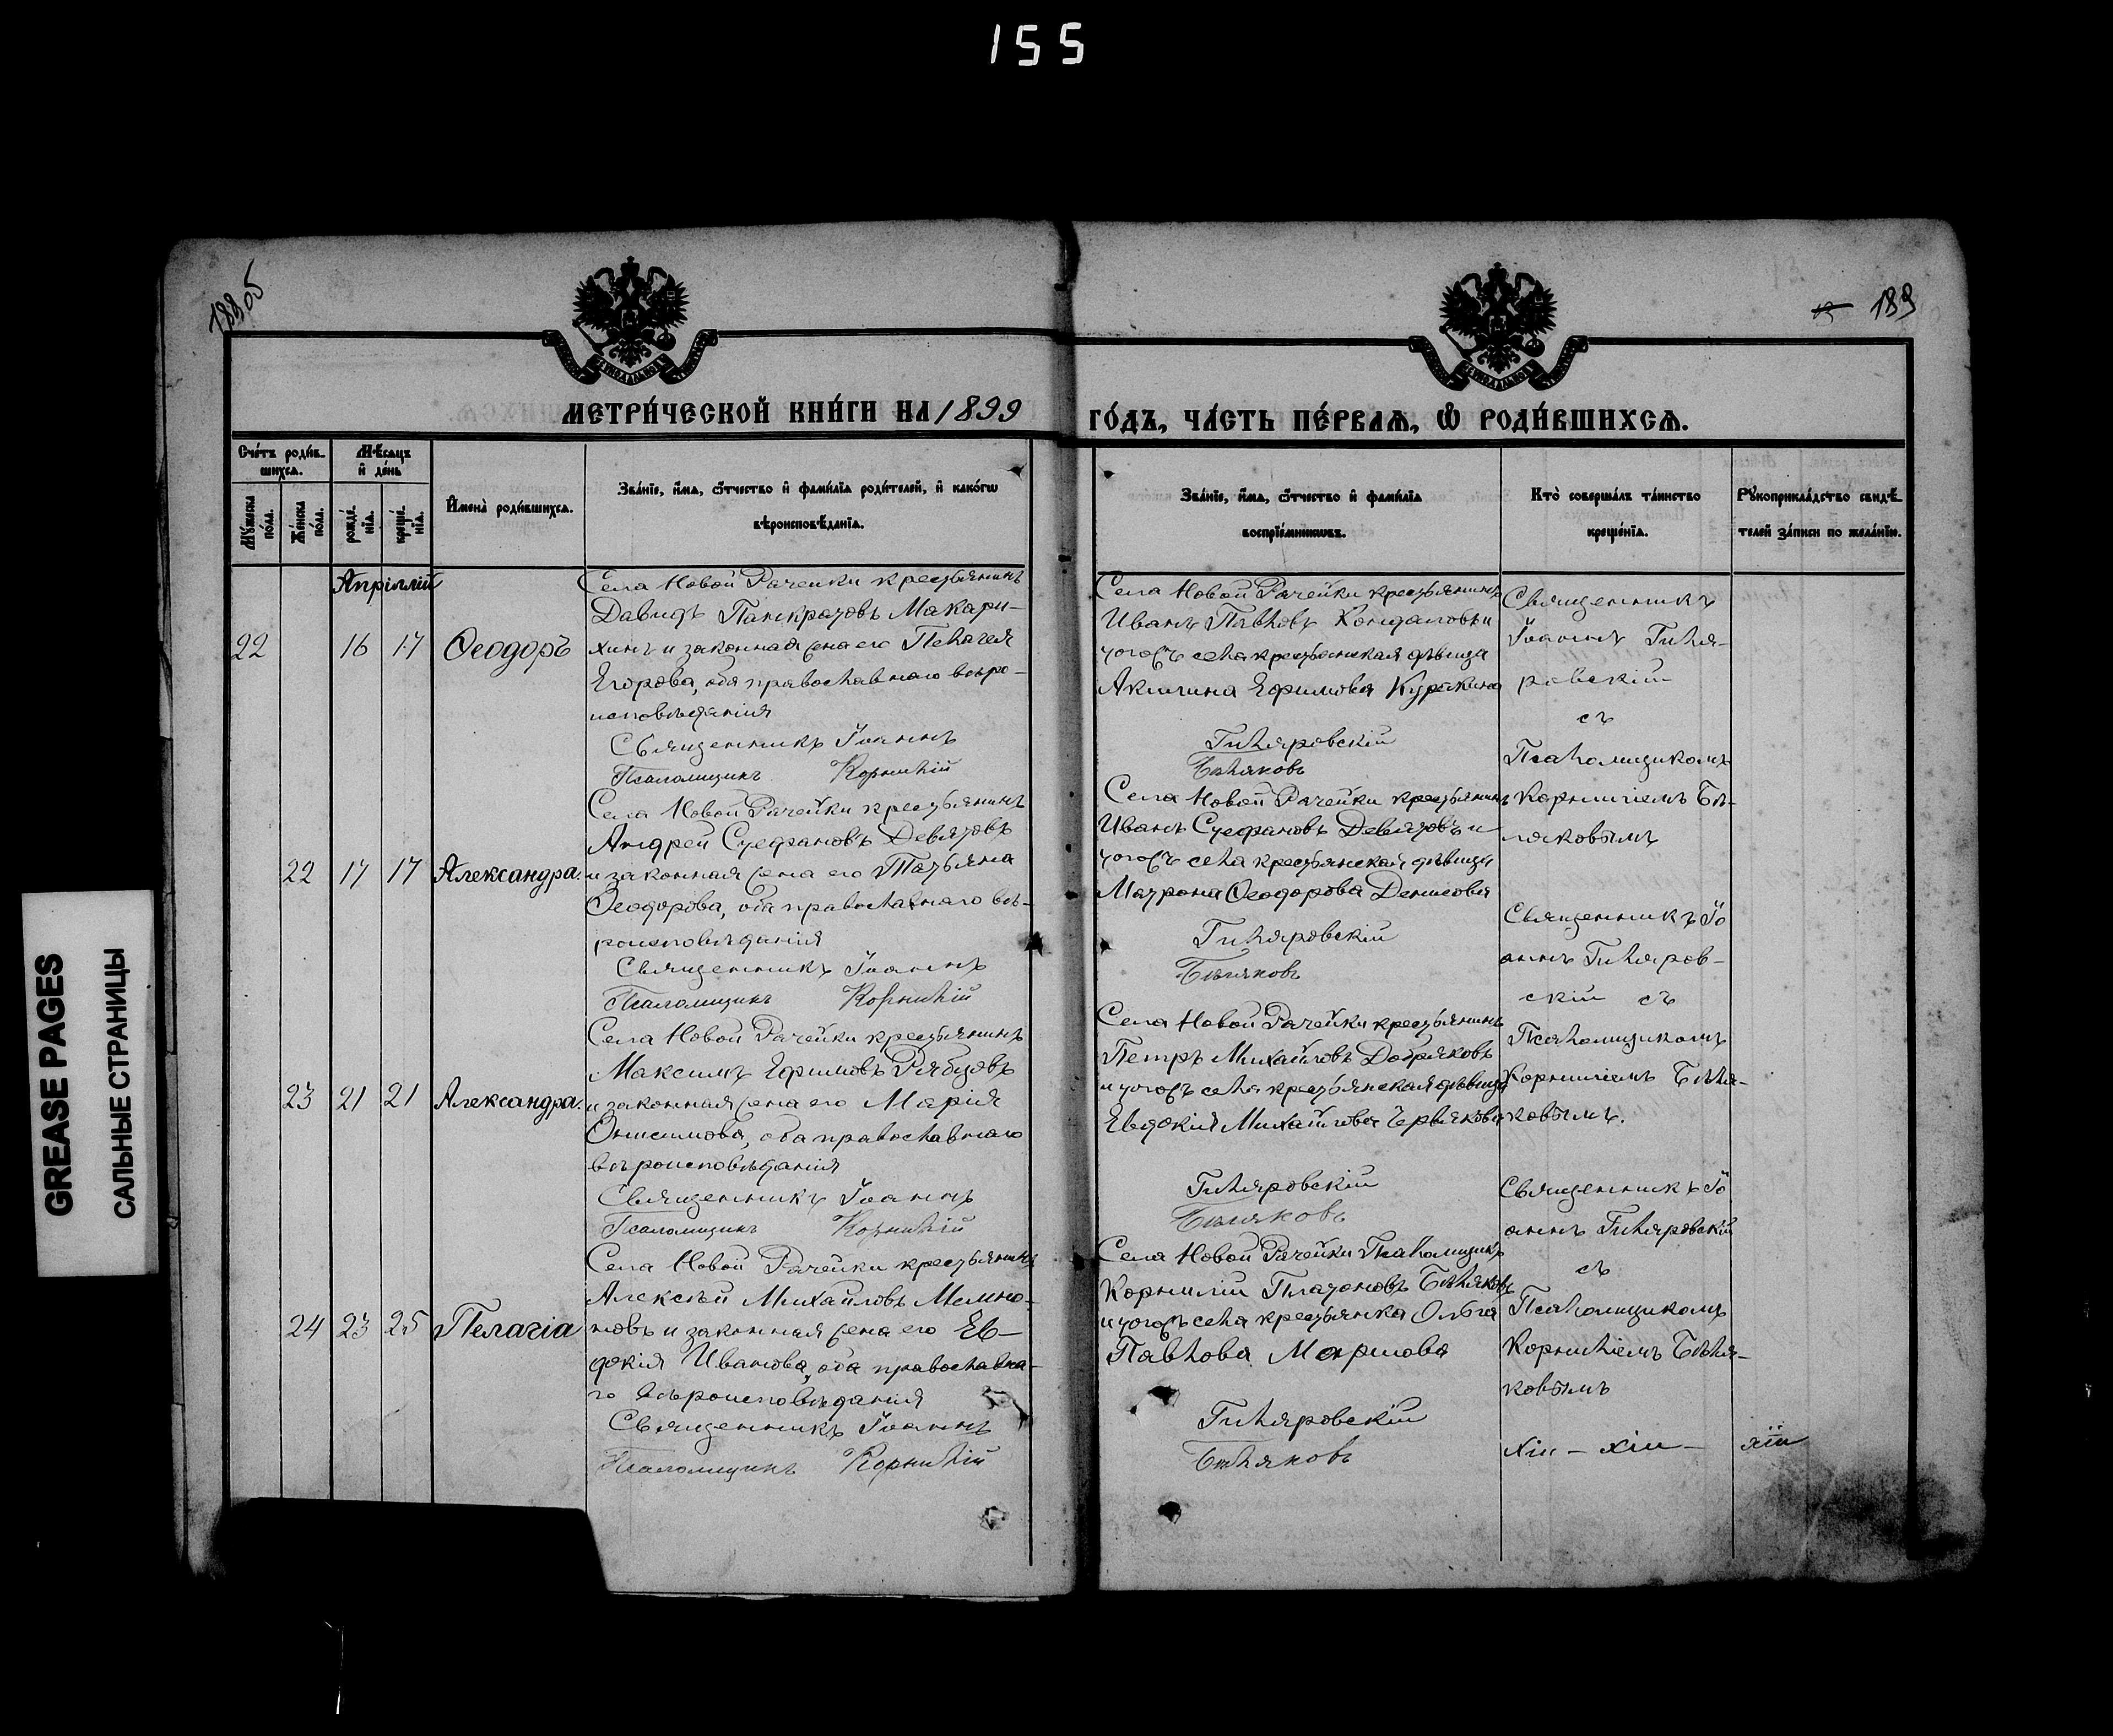 155
188об
189
МЕТРИ́ЧЕСКОЙ КНИ́ГИ НА 1899
ГО́ДЪ, ЧА́СТЬ ПЕ́РВАѦ, Ѡ РОДИ́ВШИХСѦ.
Сче́тъ роди́в-
шихсѧ.
Мѣ́сѧцъ
и҆ де́нь
Мꙋ́жеска
по́ла.
Же́нска
по́ла.
рожде́-
нїѧ.
креще́-
нїѧ.
И҆мена̀ роди́вшихсѧ.
Зва́нїе, и҆́мѧ, ѻ҆́тчество и҆ фами́лїѧ роди́телей, и҆ како́гѡ
вѣроисповѣ́данїѧ.
Зва́нїе, и҆́мѧ, ѻ҆́тчество и҆ фами́лїѧ
воспрїе́мникѡвъ.
Кто̀ соверша́лъ та́инство
креще́нїѧ.
Рꙋкоприкла́дство свидѣ́-
телей за́писи по жела́нїю.
Апрѣллій
22 16 17 Ѳеодоръ
Села Новой Рачейки крестьянинъ
Давидъ Панкратовъ Макари-
хинъ и законная жена его Пелагея
Егорова, оба православнаго вѣро-
исповѣданія
Священникъ Іоаннъ
Псаломщикъ Корнилій
Села Новой Рачейки крестьянинъ
Иванъ Павловъ и
тогожъ села крестьянская дѣвица
Акилина Ефимова Куракина
Гиляровскій
Бѣляковъ
Священникъ
Іоаннъ Гиля-
ровскій
съ
Псаломщикомъ
Корниліемъ Бѣ-
ляковымъ
22 17 17 Александра.
Села Новой Рачейки крестьянинъ
Андрей Стефановъ Девятовъ
и законная жена его Татьяна
Ѳеодорова, оба православнаго вѣ-
роисповѣданія
Священникъ Іоаннъ
Псаломщикъ Корнилій
Села Новой Рачейки крестьянинъ
Иванъ Стефановъ Девятовъ и
тогожъ села крестьянская дѣвица
Матрона Ѳеодорова Денисова
Гиляровскій
Бѣляковъ
Священникъ Іо
аннъ Гиляров-
скій съ
Псаломщикомъ
Корниліемъ Бѣля-
ковымъ.
23 21 21 Александра.
Села Новой Рачейки крестьянинъ
Максимъ Ефимовъ Рябцовъ
и законная жена его Марія
Онисимова, оба православнаго
вѣроисповѣданія
Священникъ Іоаннъ
Псаломщикъ Корнилій
Села Новой Рачейки крестьянинъ
Петръ Михайловъ Добряковъ
и тогожъ села крестьянская дѣвица
Евдокія Михайлова Червякова
Гиляровскій
Бѣляковъ
Священникъ Іо
аннъ Гиляровскій
съ
Псаломщикомъ
Корниліемъ Бѣля-
ковымъ
24 23 25 Пелагіа
Села Новой Рачейки крестьянинъ
Алексѣй Михайловъ
и законная жена его Ев-
докія Иванова, оба православна-
го вѣроисповѣданія
Священникъ Іоаннъ
Псаломщикъ Корнилій
Села Новой Рачейки Псаломщикъ
Корнилій Платоновъ Бѣляковъ
и тогожъ села крестьянка Ольга
Павлова
Гиляровскій
Бѣляковъ
GREASE PAGES
САЛЬНЫЕ СТРАНИЦЫ